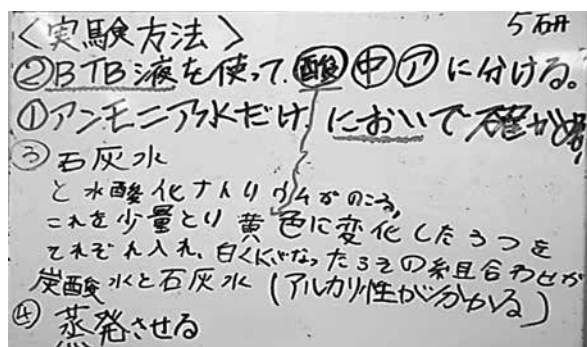 〈実験方法〉 5研
②BTB液を使って.酸中アに分ける。
①アンモニア水だけ においで確かめ
③石灰水
と水酸化ナトリウムがのこる,
これを少量とり 黄色に変化した3つを
それぞれ入れ、白くにごなったらその組合わせが
炭酸水と石灰水(アルカリ性が分かる)
④蒸発させる